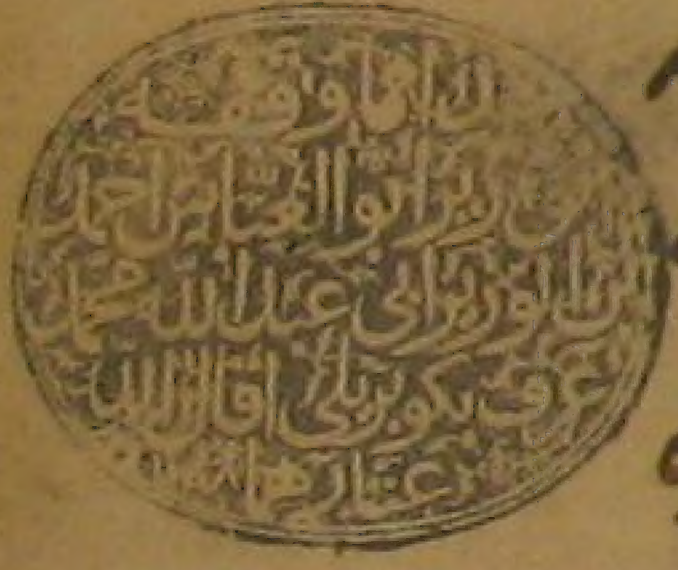 هذا مما وقفه
الوزير ابو العباس احمد
ابن الوزير ابي عبد الله محمد
عرف بكوبريلي اقال الله
عثارهما